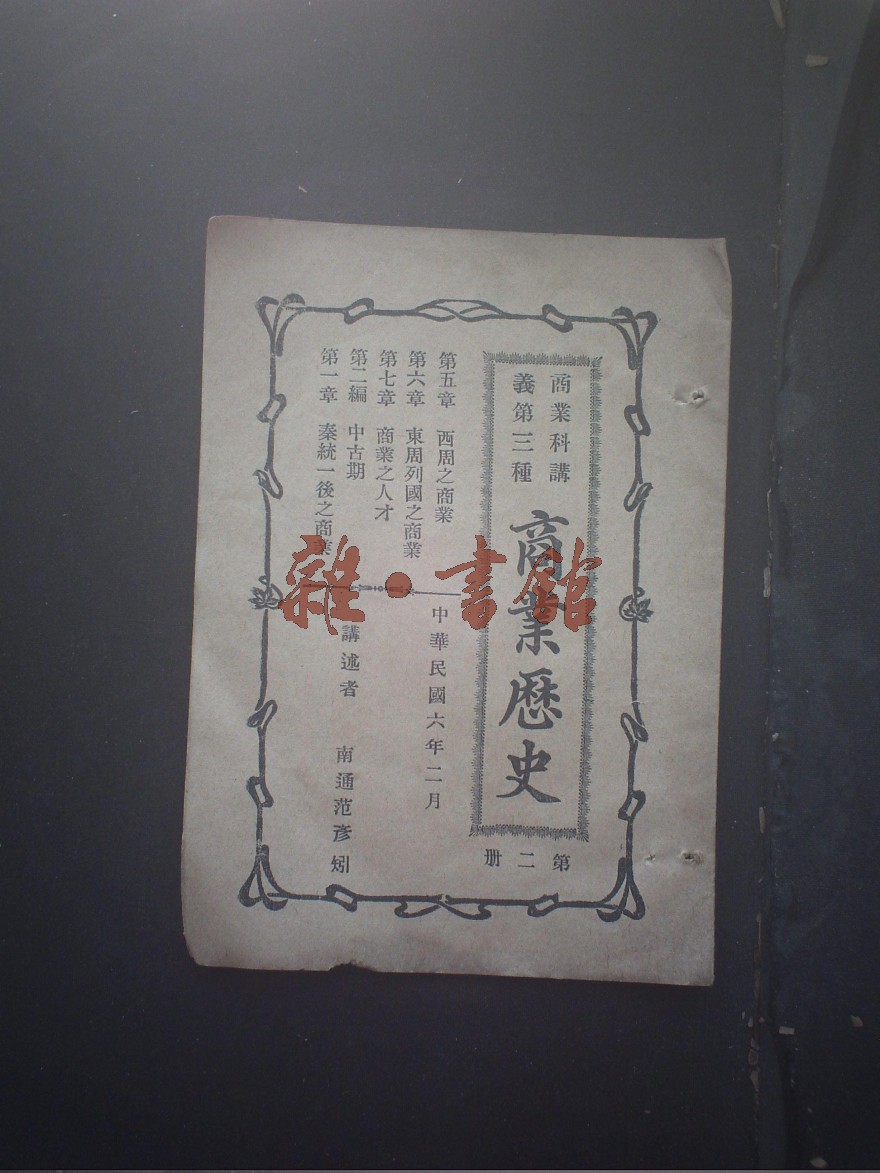 商業科講
義第三種
商業歷史
第二册
第五章 西周之商業
第六章 東周列國之商業
第七章 商業之人才
第二編 中古期
第一章 秦統一後之商業
中華民國六年二月
講述者 南通范彥矧
雜·書館